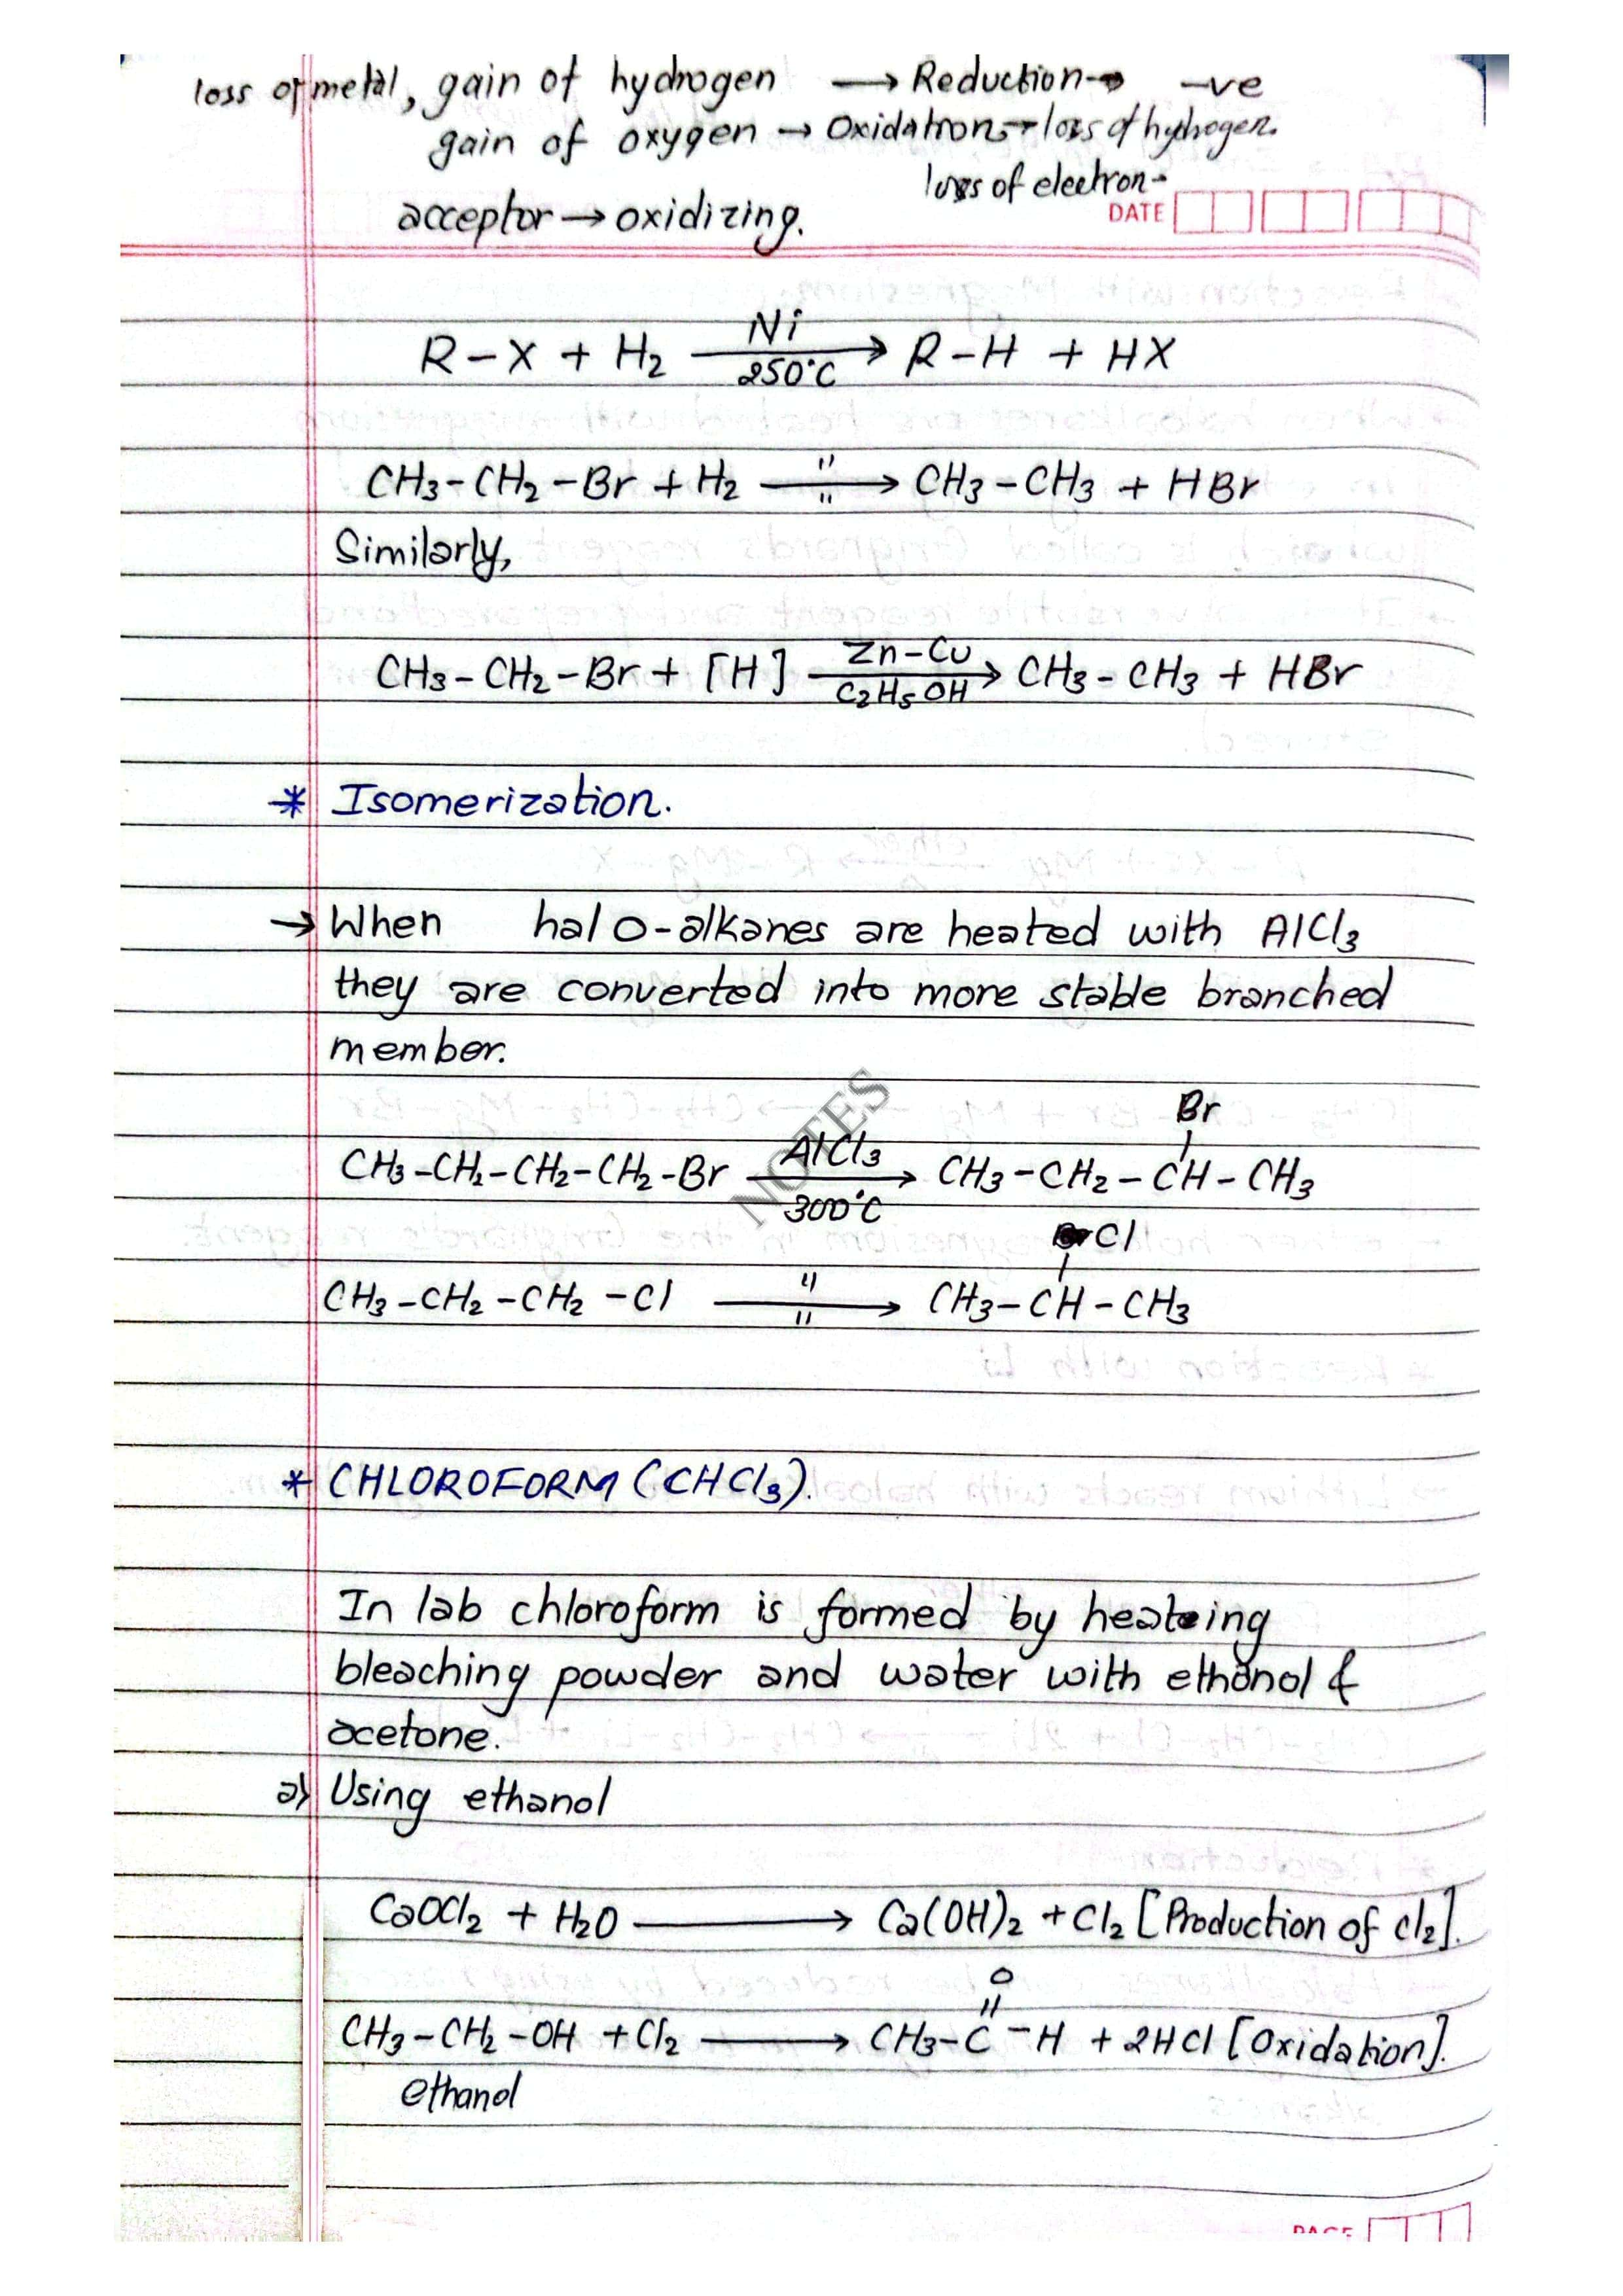 loss of metal, gain of hydrogen → Reduction → -ve
gain of oxygen → Oxidation → loss of hydrogen.
loss of electron-
acceptor → oxidizing.
DATE
R-X + H2 —Ni/250°C→ R-H + HX
CH3-CH2-Br + H2 —"/"→ CH3-CH3 + HBr
Similarly,
CH3-CH2-Br + [H] —Zn-Cu/C2H5OH→ CH3-CH3 + HBr
* Isomerization.
→ When halo-alkanes are heated with AlCl3
they are converted into more stable branched
member.
NOTES
Br
CH3-CH2-CH2-CH2-Br —AlCl3/300°C→ CH3-CH2-CH-CH3
Cl
CH3-CH2-CH2-Cl —"/"→ CH3-CH-CH3
* CHLOROFORM (CHCl3).
In lab chloroform is formed by heating
bleaching powder and water with ethanol &
acetone.
a) Using ethanol
CaOCl2 + H2O → Ca(OH)2 + Cl2 [Production of Cl2].
O
CH3-CH2-OH + Cl2 → CH3-C-H + 2HCl [Oxidation].
ethanol
PAGE